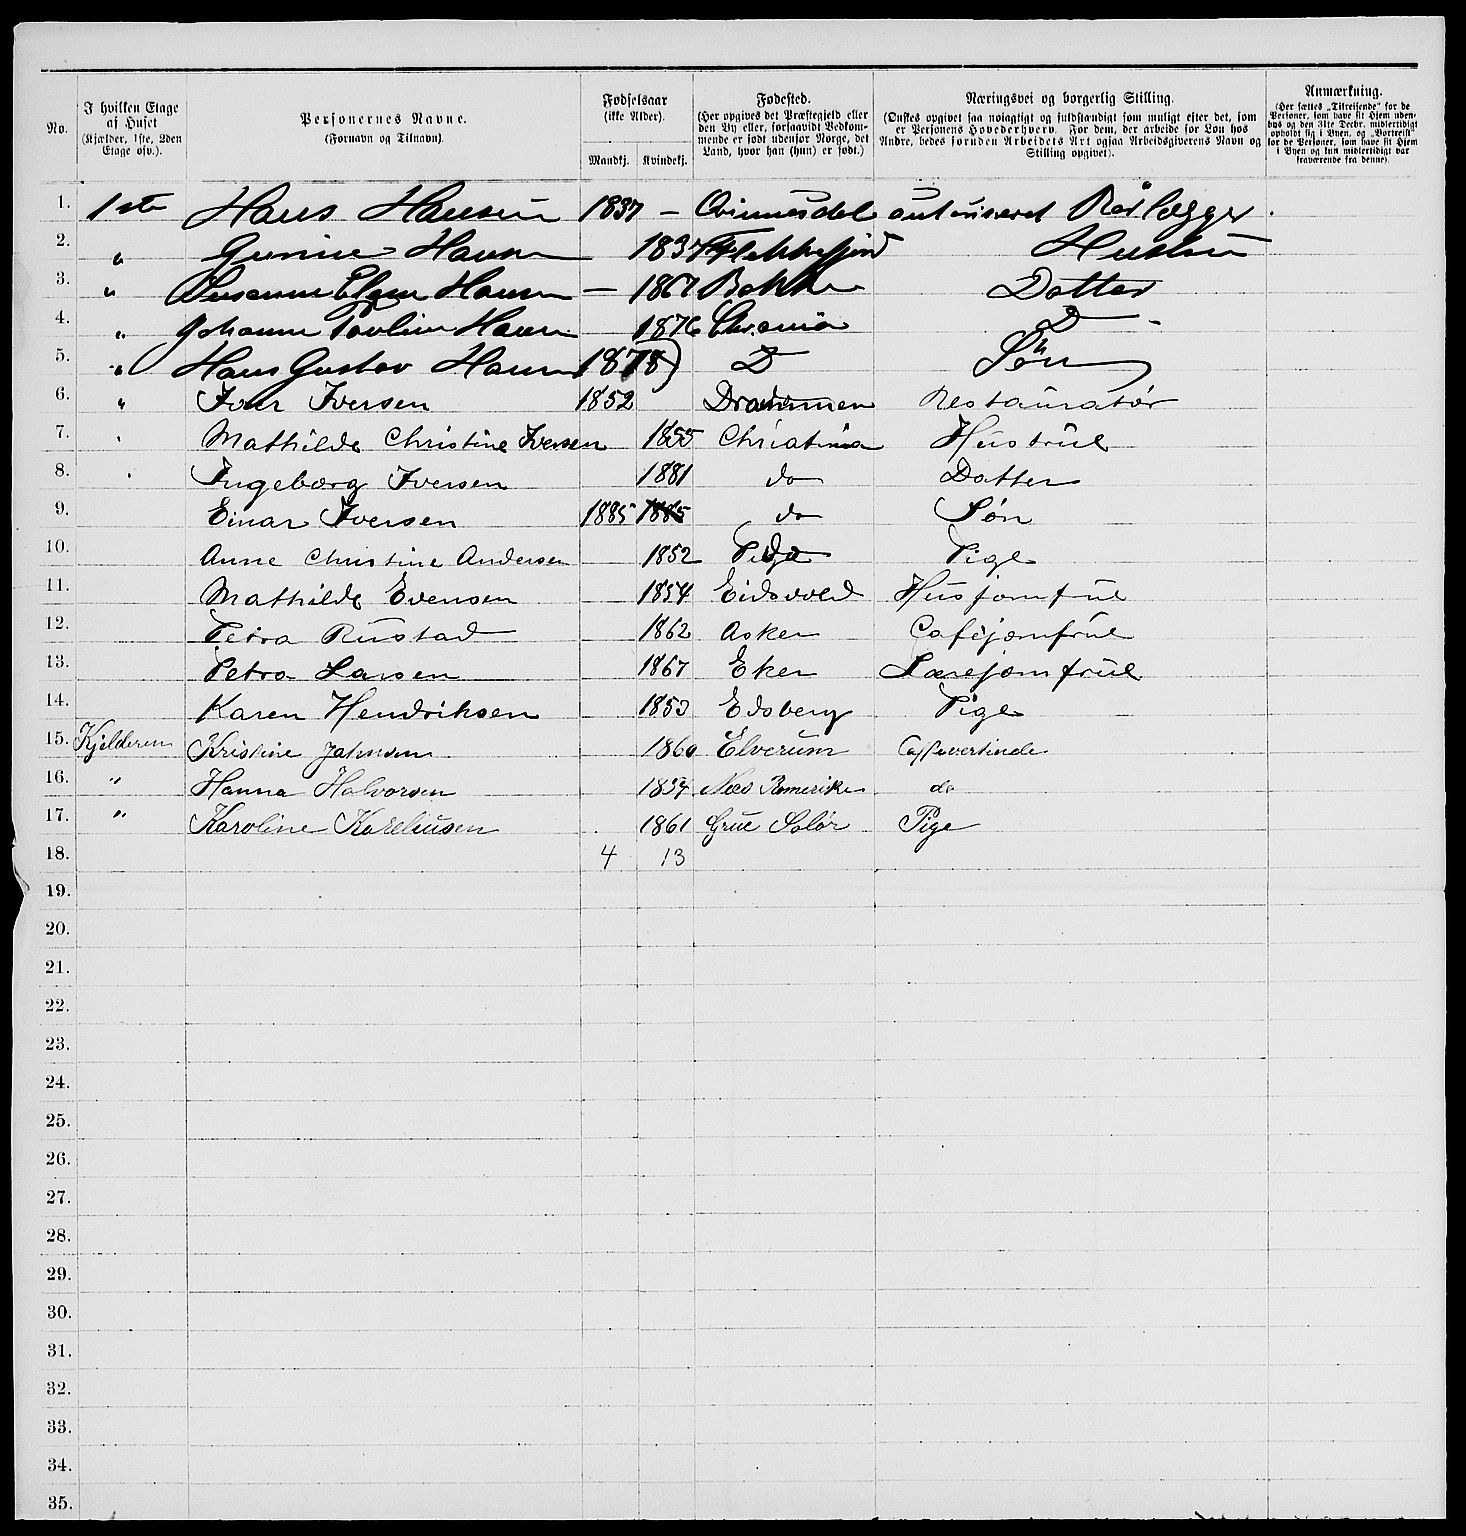 No. I hvilken Etage af Huset (Kjælder, 1ste, 2den Etage osv.). Personernes Navne. (Fornavn og Tilnavn). Fødselsaar (ikke Alder). Mandkj. Kvindekj. Fødested. (Her opgives det Præstegjeld eller den By eller, forsaavidt Vedkommende er født udenfor Norge, det Land, hvor han (hun) er født.) Næringsvei og borgerlig Stilling. (Ønskes opgivet saa nøiagtigt og fuldstændigt som muligt efter det, som er Personens Hovederhverv. For dem, der arbeide for Løn hos Andre, bedes foruden Arbeidets Art ogsaa Arbeidsgiverens Navn og Stilling opgivet). Anmærkning. (Her sættes „Tilreisende“ for de Personer, som have sit Hjem udenbys og den 31te Decbr. midlertidigt opholdt sig i Byen, og „Bortreist“ for de Personer, som have sit Hjem i Byen og kun midlertidigt var fraværende fra denne).
1. 1ste Hans Hansen 1837 – Qvinnesdal autoriseret Rörlægger.
2. " Gunine Hansen 1837 Flekkefjord Hustru
3. " Susanne Hansen – 1867 Bakke Datter
4. " Johanne Pauline Hansen 1876 Chr.ania D –
5. " Hans Gustav Hansen 1878 D Søn
6. " Ivar Iversen 1852 Drammen Restauratør
7. " Mathilde Christine Iversen 1855 Christania Hustrue
8. " Ingeborg Iversen 1881 do Datter
9. Einar Iversen 1885 1885 do Søn
10. Anne Christine Andersen 1852 do Pige
11. Mathilde Evensen 1854 Eidsvold Husjomfrue
12. Petra Rustad 1862 Asker Caféjomfrue
13. Petra Larsen 1867 Eker Lærejomfrue
14. Karen Hendriksen 1853 Edsberg Pige
15. Kjelderen Kristine Johnsen 1860 Elverum
16. " Hanna Halvorsen Næs Romerike do
17. " Karoline Kareliusen 1861 Grue Solør Pige
18. 4 13
19.
20.
21.
22.
23.
24.
25.
26.
27.
28.
29.
30.
31.
32.
33.
34.
35.